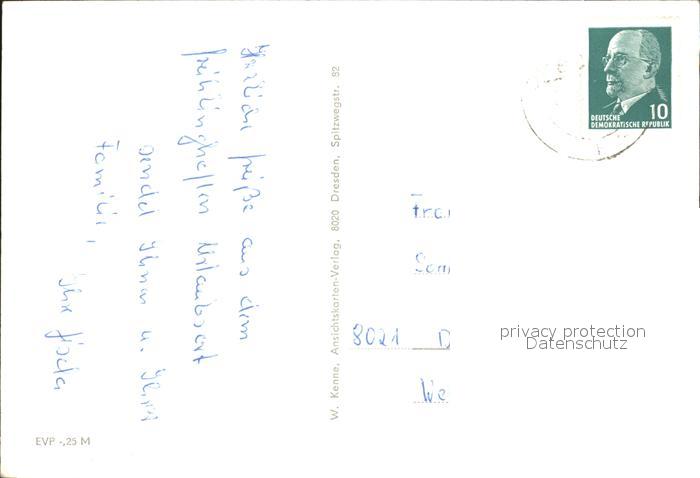 Herzliche Grüße aus dem
frühlinghaften Urlaubsort
sendet Ihnen u. Ihrer
Familie,
Ihre
W. Kenne, Ansichtskarten-Verlag, 8020 Dresden, Spitzwegstr. 52
DEUTSCHE
DEMOKRATISCHE REPUBLIK
10
8021 D
We
privacy protection
Datenschutz
EVP -,25 M